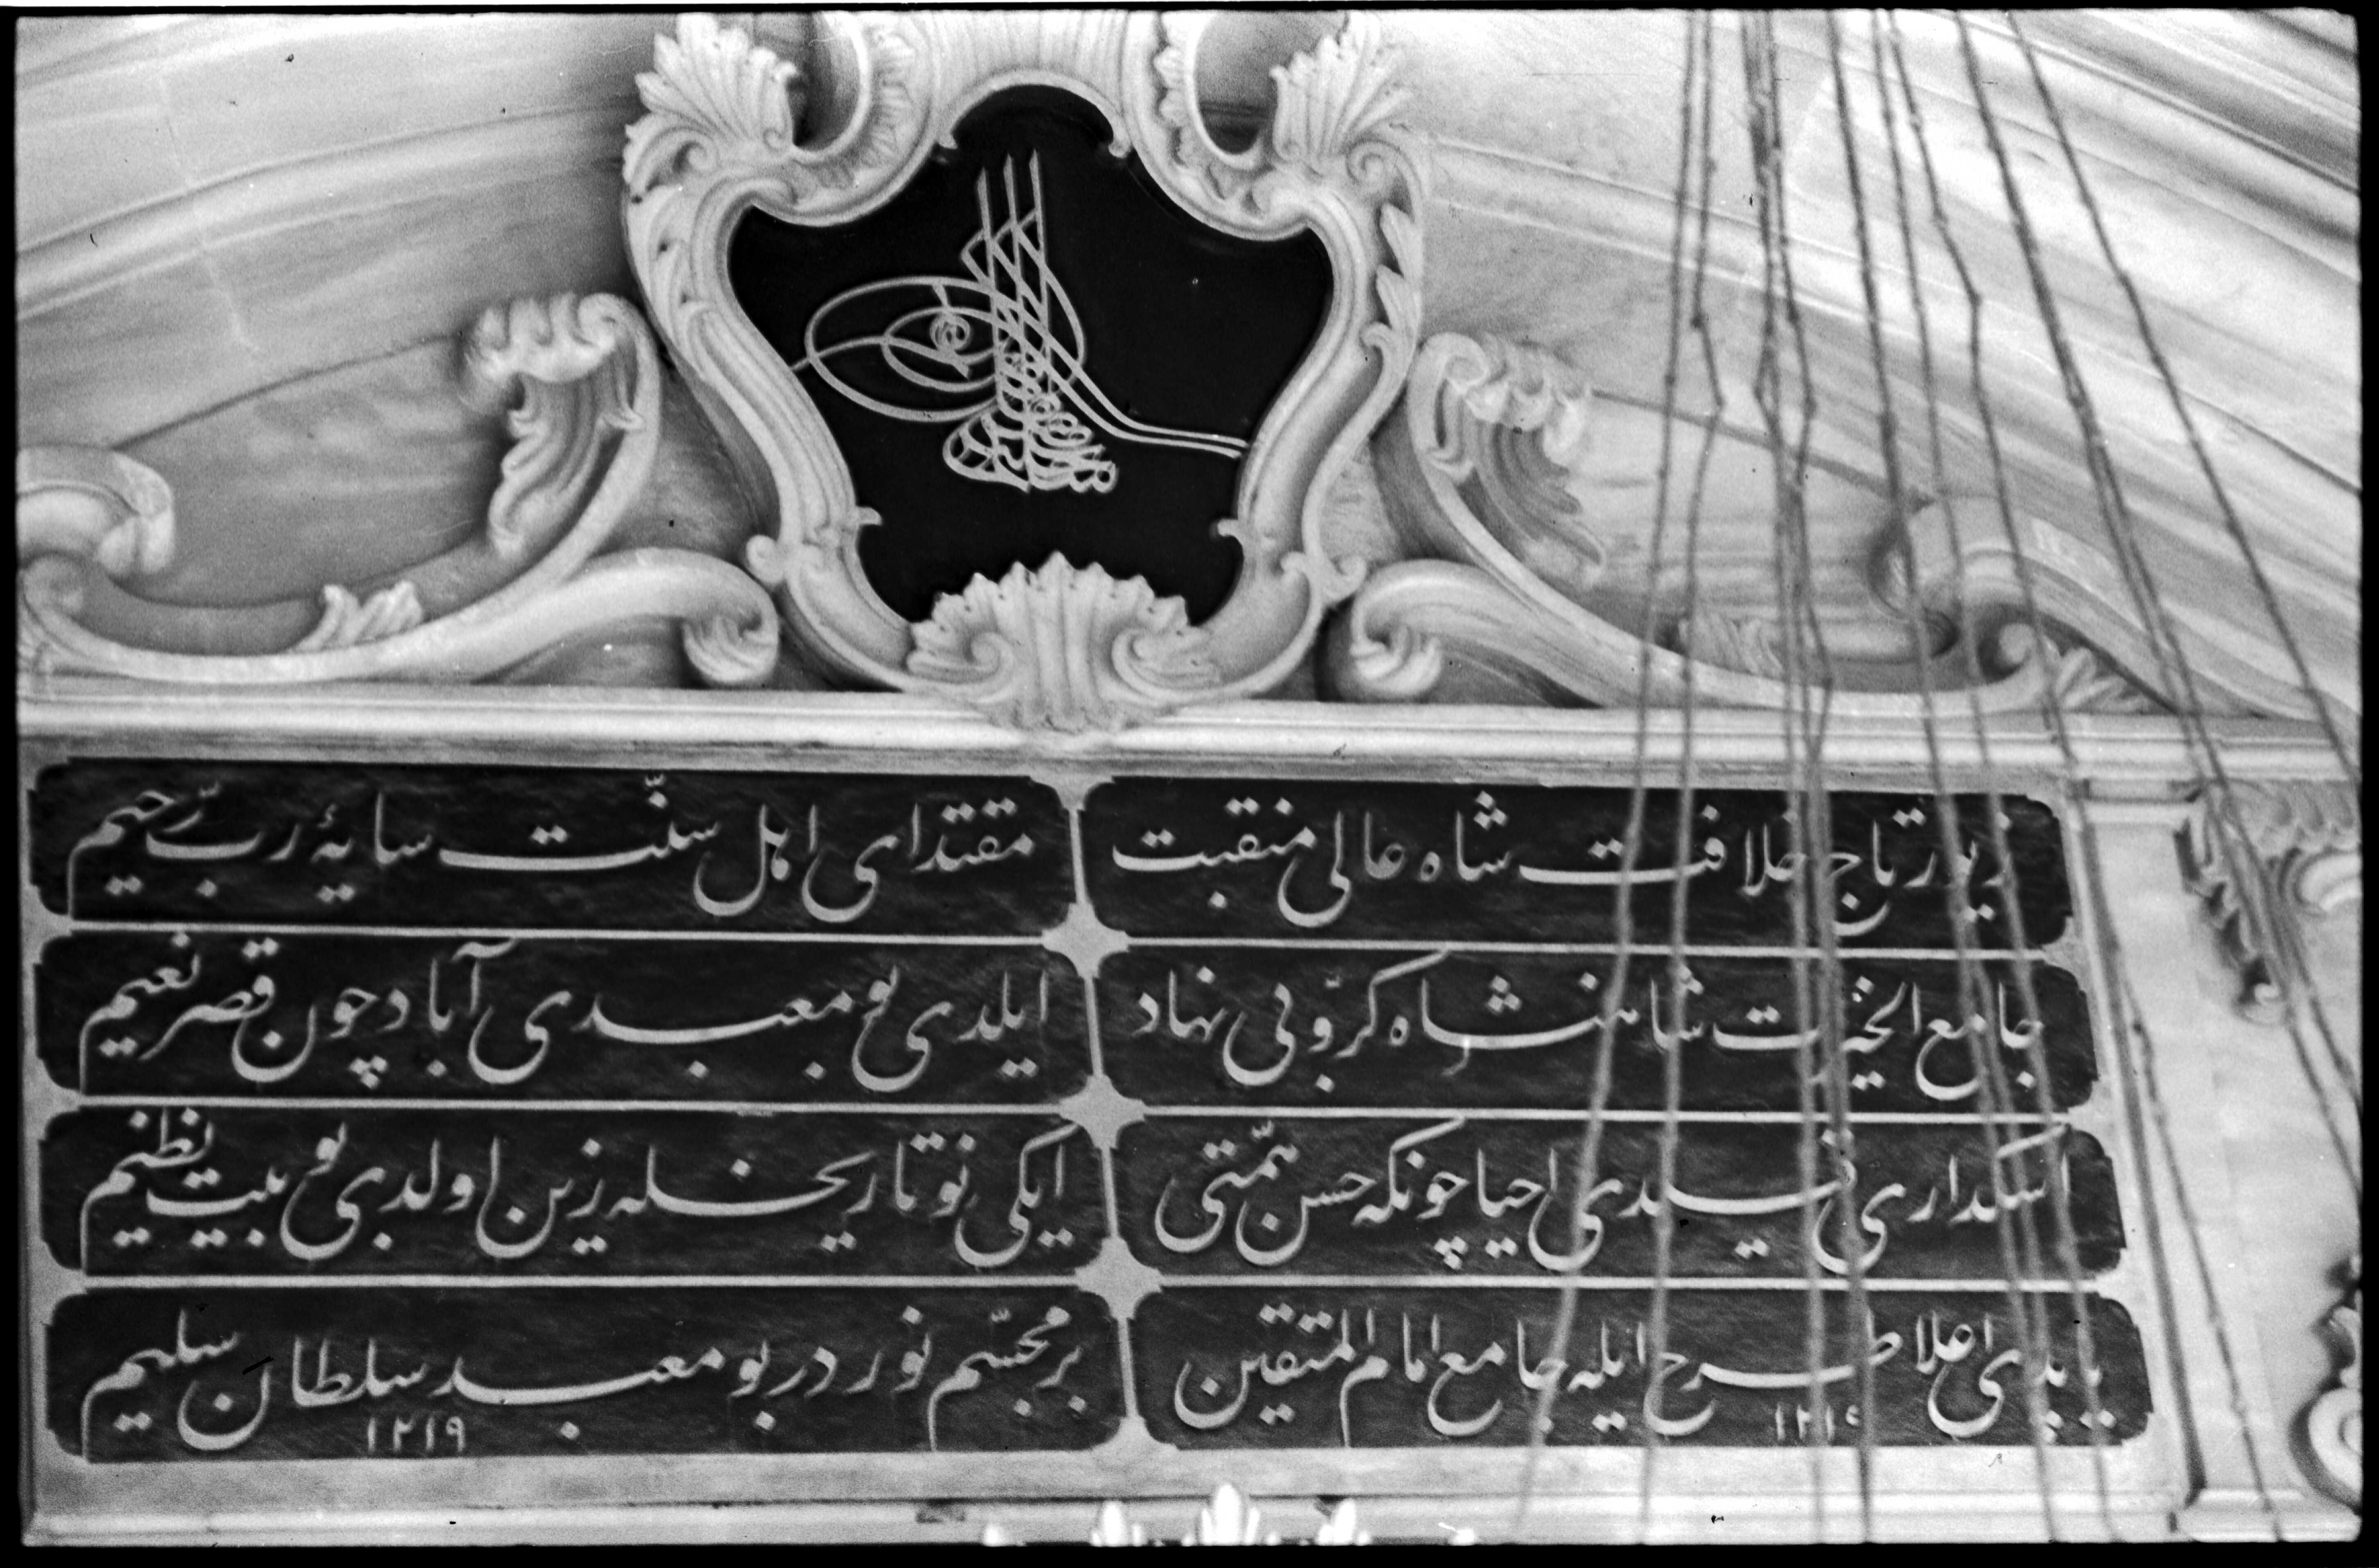 زيور تاج خلافت شاه عالی منقبت
مقتدای اهل سنّت سايۀ ربّ رحيم
جامع الخيرات شاهنشاه كرّوبی نهاد
ايلدی نو معبدی آباد چون قصر نعيم
اسكداری ايدی احيا چونكه حسن همّتی
ايكی نو تاريخله زين اولدی نو بيت نظيم
ياپدی اعلا طرح ايله جامع امام المتقين
١٢١٩
بر مجسّم نور در بو معبد سلطان سليم
١٢١٩